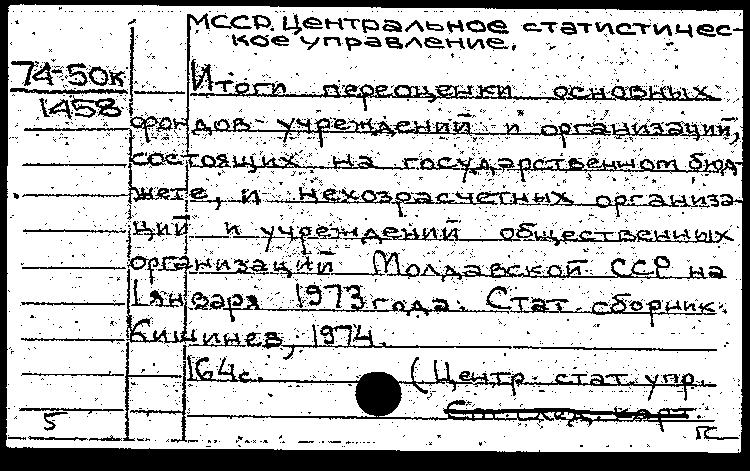 МССР. Центральное статистичес-
кое управление.
74-50к
1458
Итоги переоценки основных
фондов учреждений и организаций,
состоящих на государственном бюд-
жете, и нехозрасчетных организа-
ций и учреждений общественных
организаций Молдавской ССР на
1 января 1973 года. Стат. сборник.
Кишинев, 1974.
164с. (Центр. стат. упр.
См. след. карт.
5